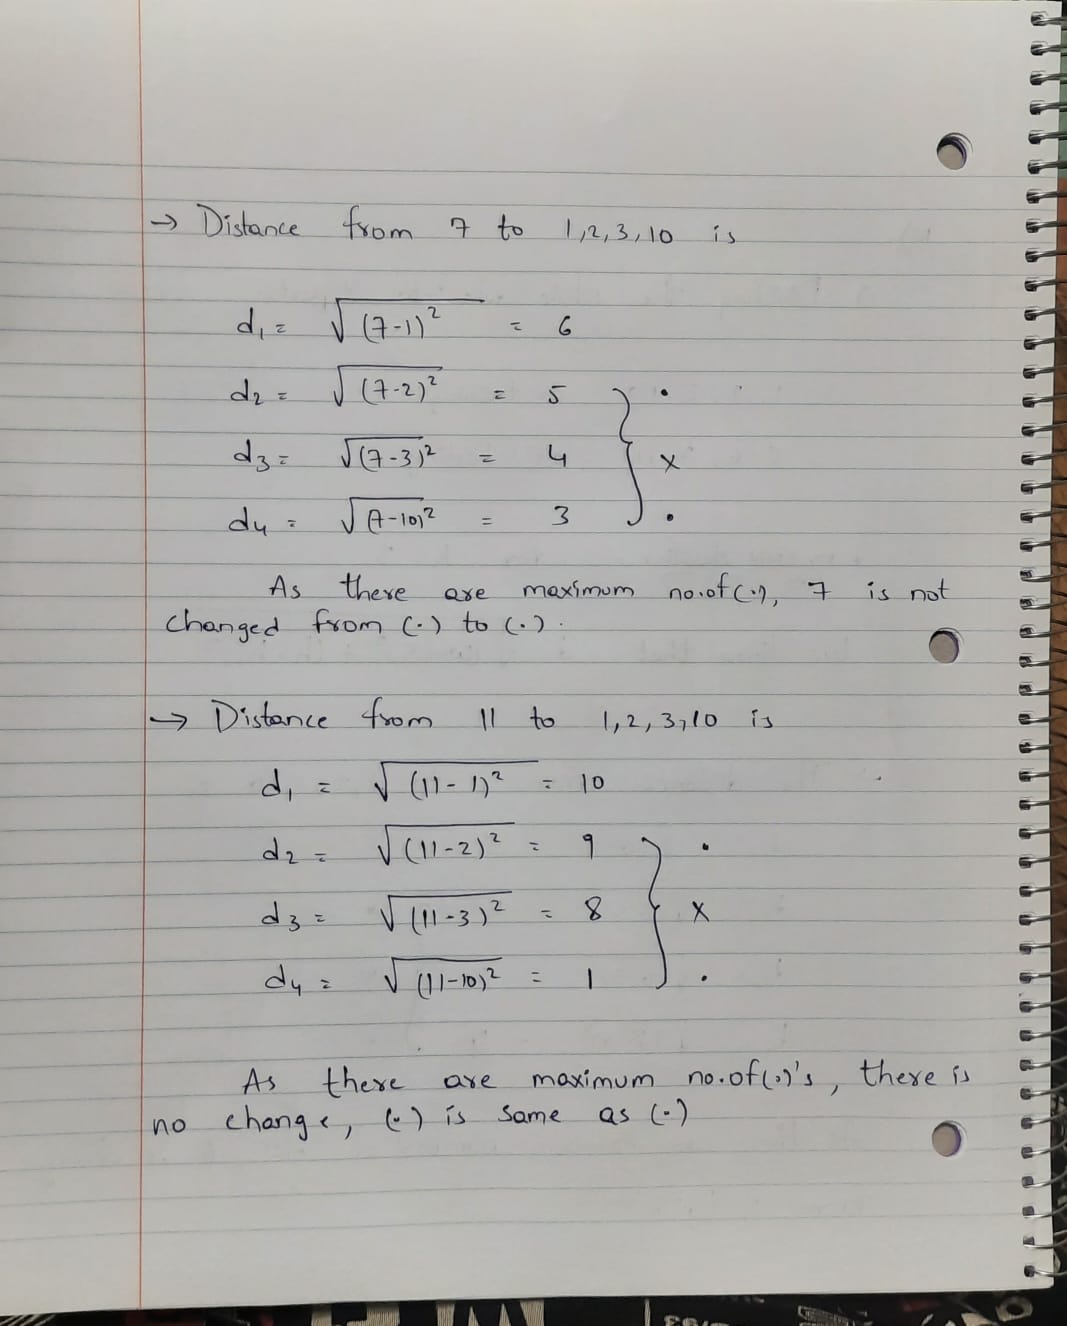 → Distance from 7 to 1,2,3,10 is
d₁ = √(7-1)² = 6
d₂ = √(7-2)² = 5 } •
d₃ = √(7-3)² = 4 } x
d₄ = √(7-10)² = 3 } •
As there are maximum no.of (.), 7 is not
changed from (.) to (.).
→ Distance from 11 to 1,2,3,10 is
d₁ = √(11-1)² = 10
d₂ = √(11-2)² = 9 } •
d₃ = √(11-3)² = 8 } x
d₄ = √(11-10)² = 1 } •
As there are maximum no.of (.)'s, there is
no change, (.) is same as (.)